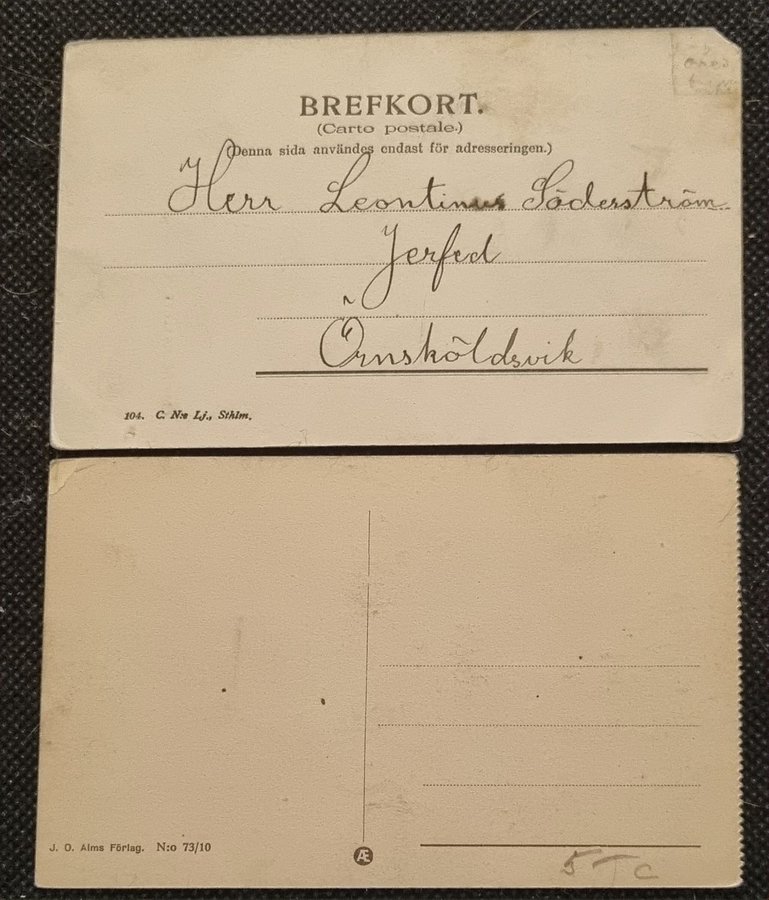 BREFKORT.
(Carto postale.)
(Denna sida användes endast för adresseringen.)
Herr Leontinus Söderström
Jerfed
Örnsköldsvik
104. C. N:s Lj., Sthlm.
J. O. Alms Förlag. N:o 73/10
Æ
5 TC